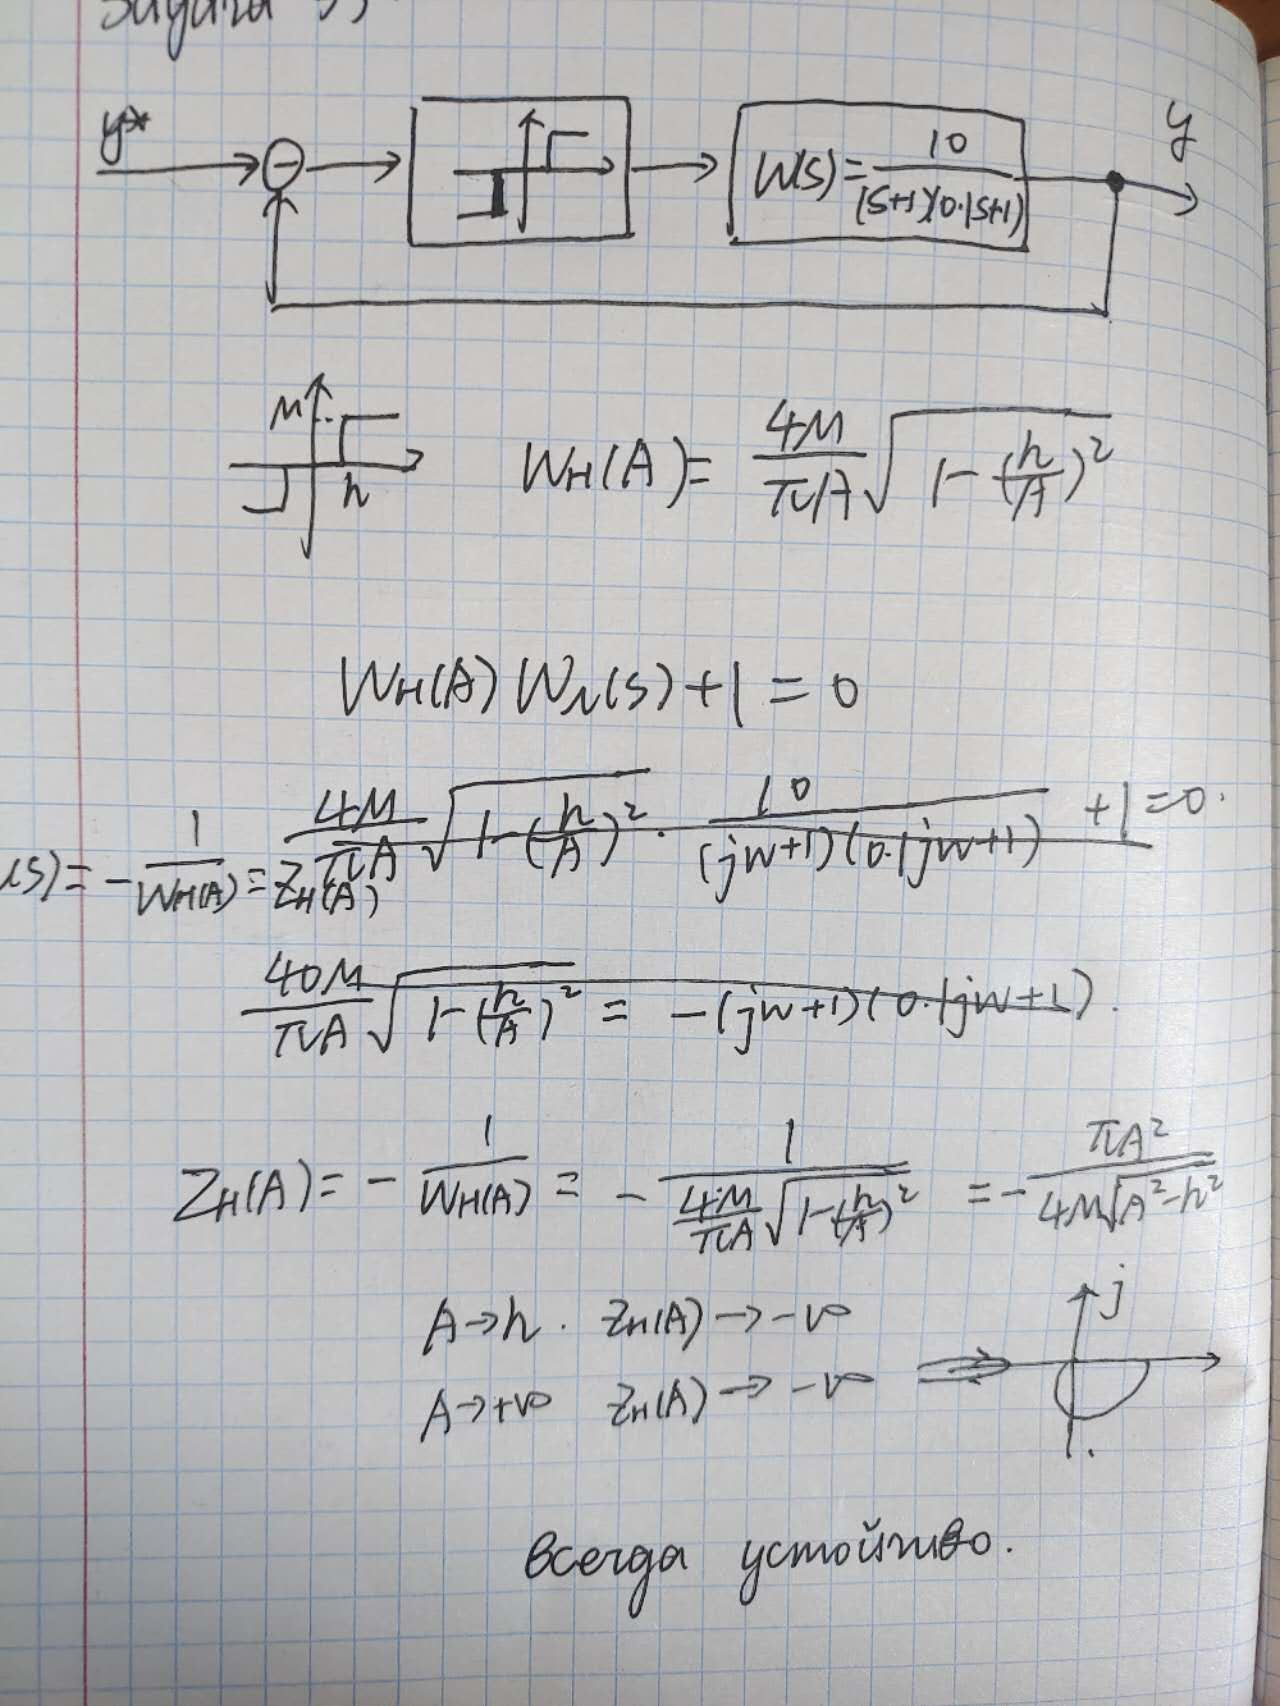 Задача
y* W(s) = 10/((s+1)(0.1s+1)) y
M h W_H(A) = 4M/(πA) √(1-(h/A)²)
W_H(A) W_л(s) + 1 = 0
4M/(πA) √(1-(h/A)²) · 10/((jw+1)(0.1jw+1)) + 1 = 0.
(s) = - 1/W_H(A) = Z_H(A)
40M/(πA) √(1-(h/A)²) = -(jw+1)(0.1jw+1).
Z_H(A) = - 1/W_H(A) = - 1/(4M/(πA) √(1-(h/A)²)) = - πA²/(4M√(A²-h²))
A→h . Z_H(A) → -∞
A→+∞ Z_H(A) → -∞ ⇒ j
всегда устойчиво.